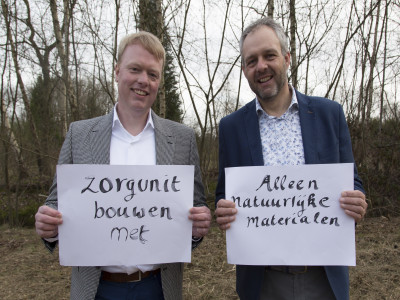 Zorgunit
bouwen
met
Alleen
natuurlijke
materialen